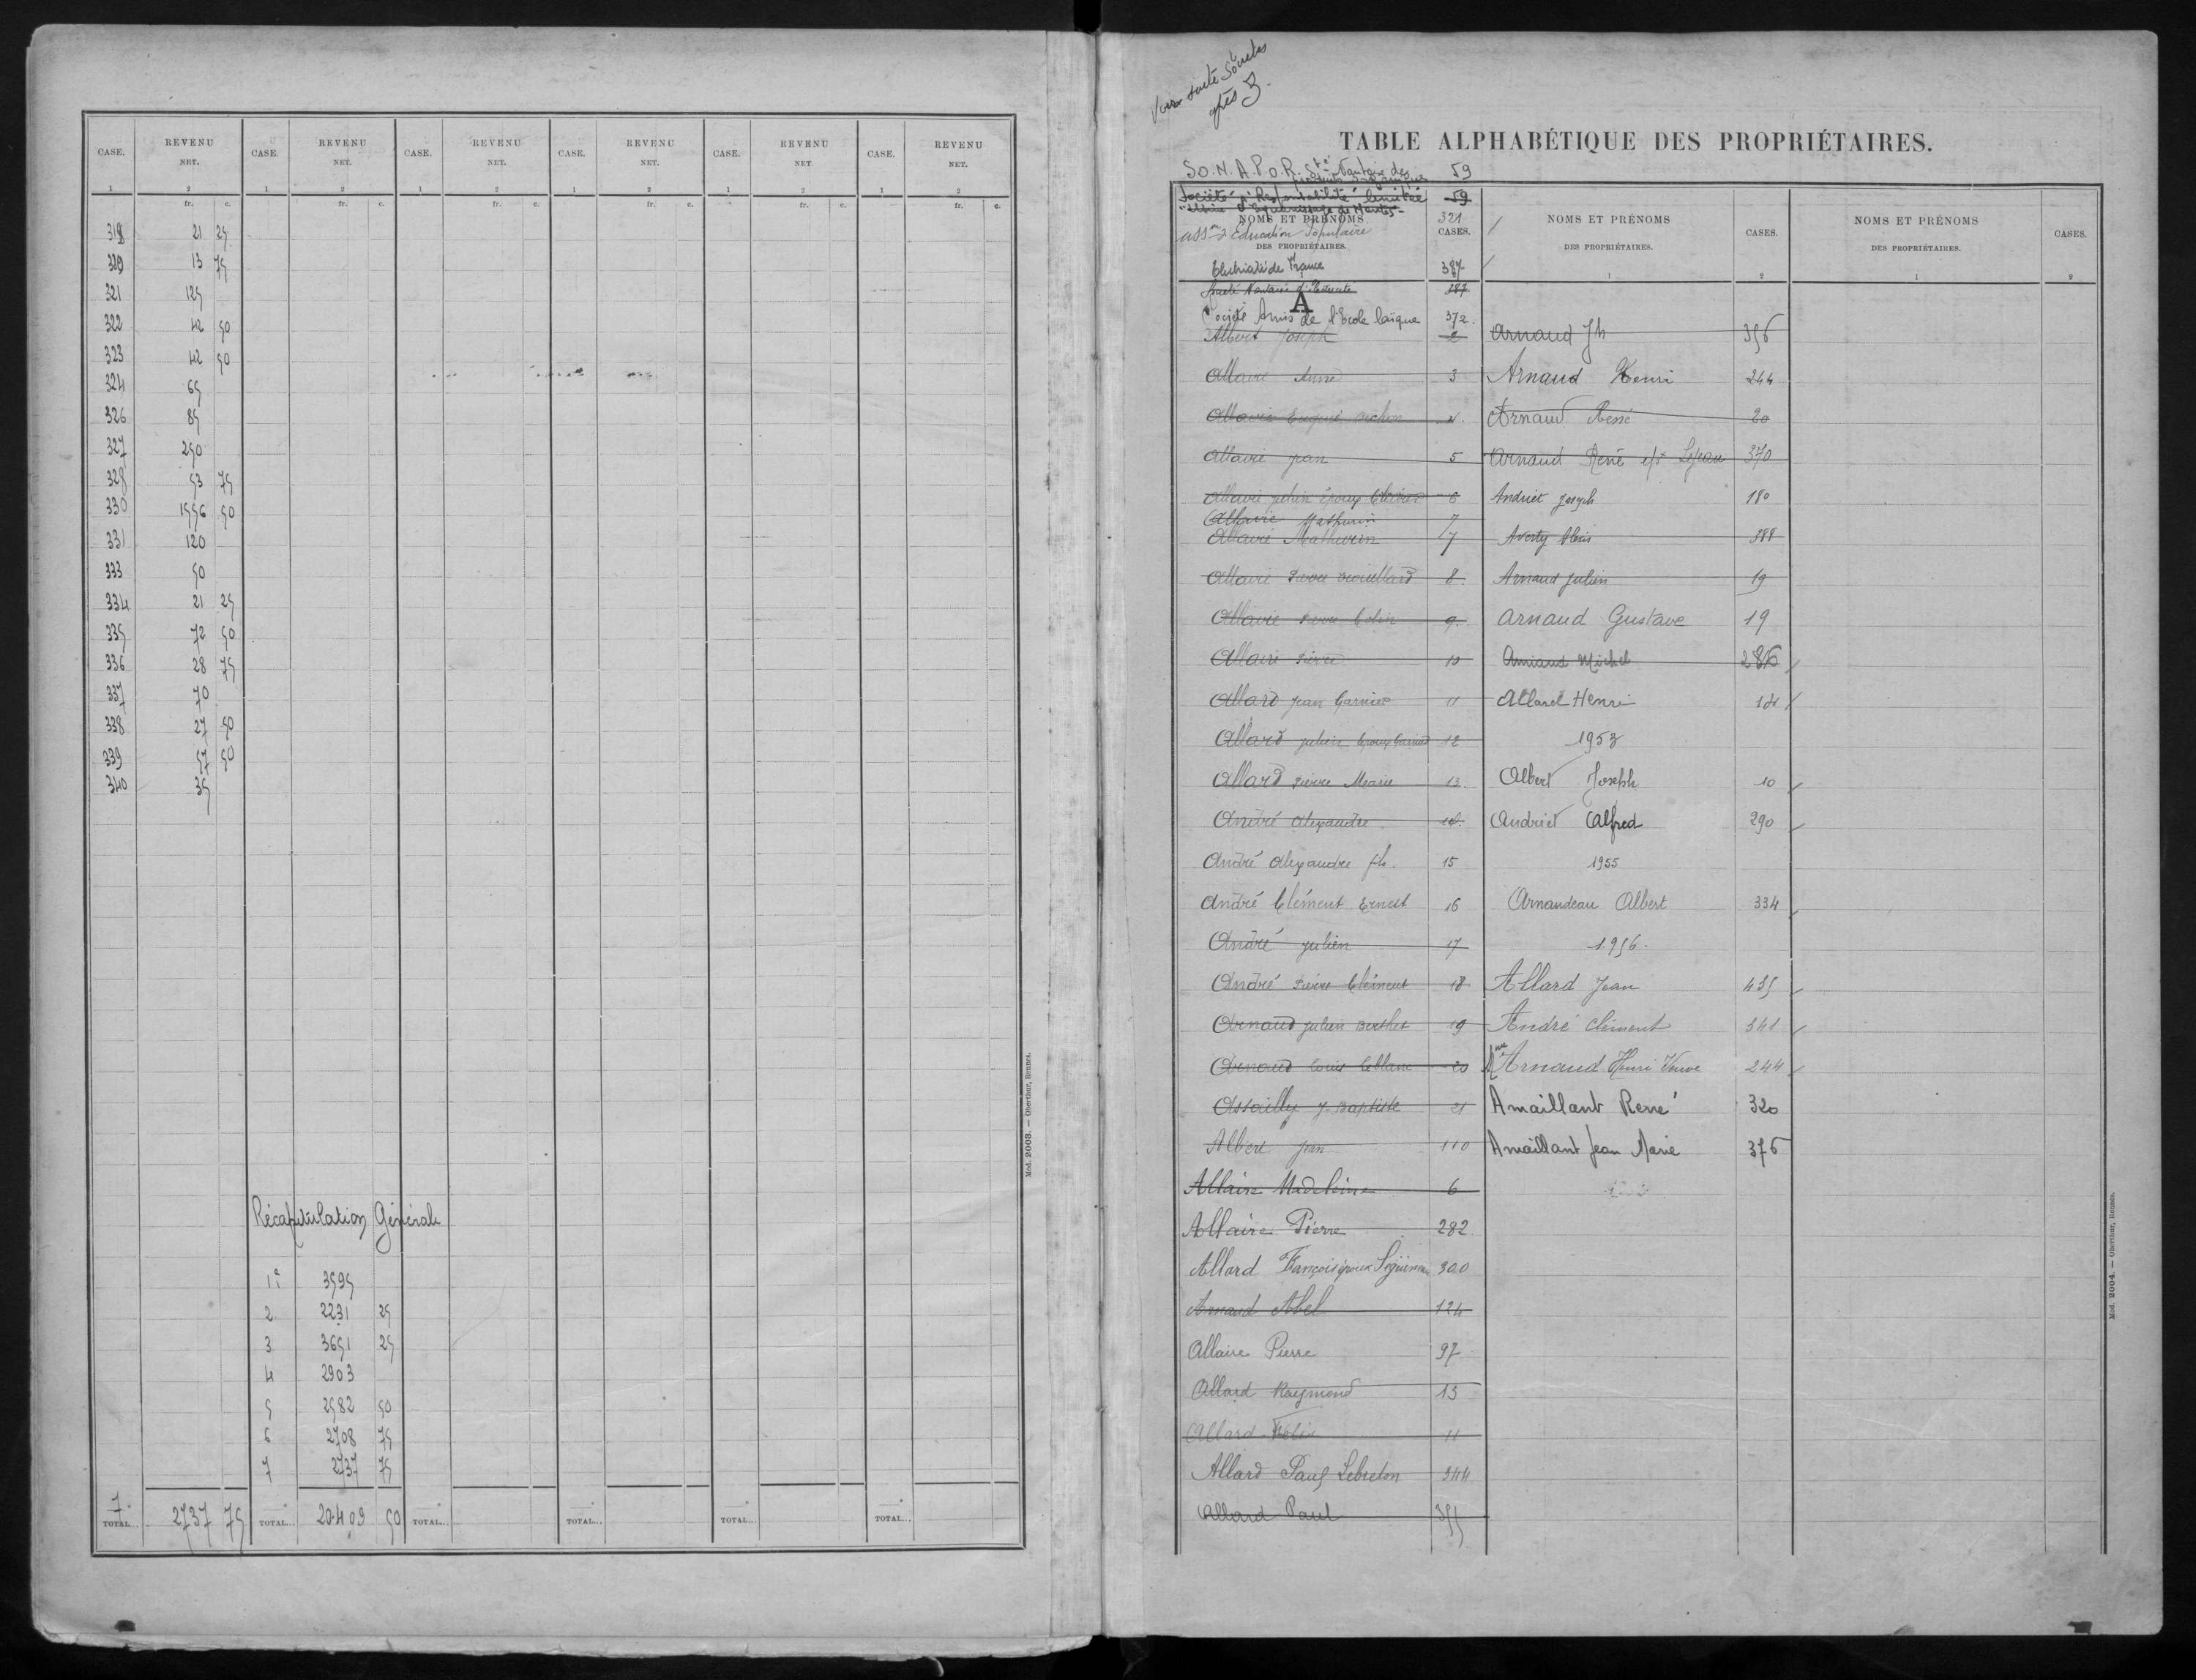 CASE. REVENU NET. CASE. REVENU NET. CASE. REVENU NET. CASE. REVENU NET. CASE. REVENU NET. CASE. REVENU NET.
1 2 1 2 1 2 1 2 1 2 1 2
fr. c. fr. c. fr. c. fr. c. fr. c. fr. c.
318 21 25
320 13 75
321 125
322 42 50
323 42 50
324 65
326 85
327 250
328 53 75
330 1556 50
331 120
333 50
334 21 25
335 72 50
336 28 75
337 70
338 27 50
339 57 50
340 35
Récapitulation Générale
1e 3595
2 2231 25
3 3651 25
4 2903
5 2582 50
6 2708 75
7 2737 75
7.
TOTAL... 2737 75 TOTAL... 20409 50 TOTAL... TOTAL... TOTAL... TOTAL...
Mod. 2003. — Oberthur, Rennes.
Voir suite Sociétés
après Z.
TABLE ALPHABÉTIQUE DES PROPRIÉTAIRES.
S.O.N.A.P.O.R. Sté Nantaise des 59
produits organiques
Société à Responsabilité limitée 59
Usine d'Equarrissage de Nantes
NOMS ET PRÉNOMS
DES PROPRIÉTAIRES.
CASES.
Asson d'Education Populaire 321
Electricité de France 387
Société Nantaise d'Electricité 287
A
Société Amis de l'Ecole laïque 372
Albert Joseph 2
Allaire Anne 3
Allaire 4
Allaire Jean 5
Allaire Julien époux 6
Allaire Mathurin 7
Allaire Mathurin 7
Allaire Pierre 8
Allaire Pierre Colin 9
Allaire Pierre 10
Allard Jean Garnier 11
Allard Julien époux 12
Allard Pierre Marie 13
André Alexandre 14
André Alexandre fils 15
André Clément Ernest 16
André Julien 17
André Pierre Clément 18
Arnaud Julien Berthet 19
Arnaud Louis Leblanc 20
Assailly J. Baptiste 21
Albert Jean 110
Allaire Madeleine 6
Allaire Pierre 282
Allard François époux 300
Arnaud Abel 124
Allaire Pierre 97
Allard Raymond 13
Allard Félix 11
Allard Paul Lebreton 344
Allard Paul 355
NOMS ET PRÉNOMS
DES PROPRIÉTAIRES.
CASES.
1 2
Arnaud Jh 356
Arnaud Henri 244
Arnaud René 20
Arnaud René ep. Lejeau 370
Andriet Joseph 180
Averty Alexis 388
Arnaud Julien 19
Arnaud Gustave 19
Amiaud Michel 286
Allard Henri
1953
Albert Joseph 10
Andriet Alfred 290
1955
Arnaudeau Albert 334
1956.
Allard Jean 435
André Clément 341
Mme Arnaud Henri Veuve 244
Amaillant René 320
Amaillant Jean Marie 376
NOMS ET PRÉNOMS
DES PROPRIÉTAIRES.
CASES.
1 2
Mod. 2004. — Oberthur, Rennes.